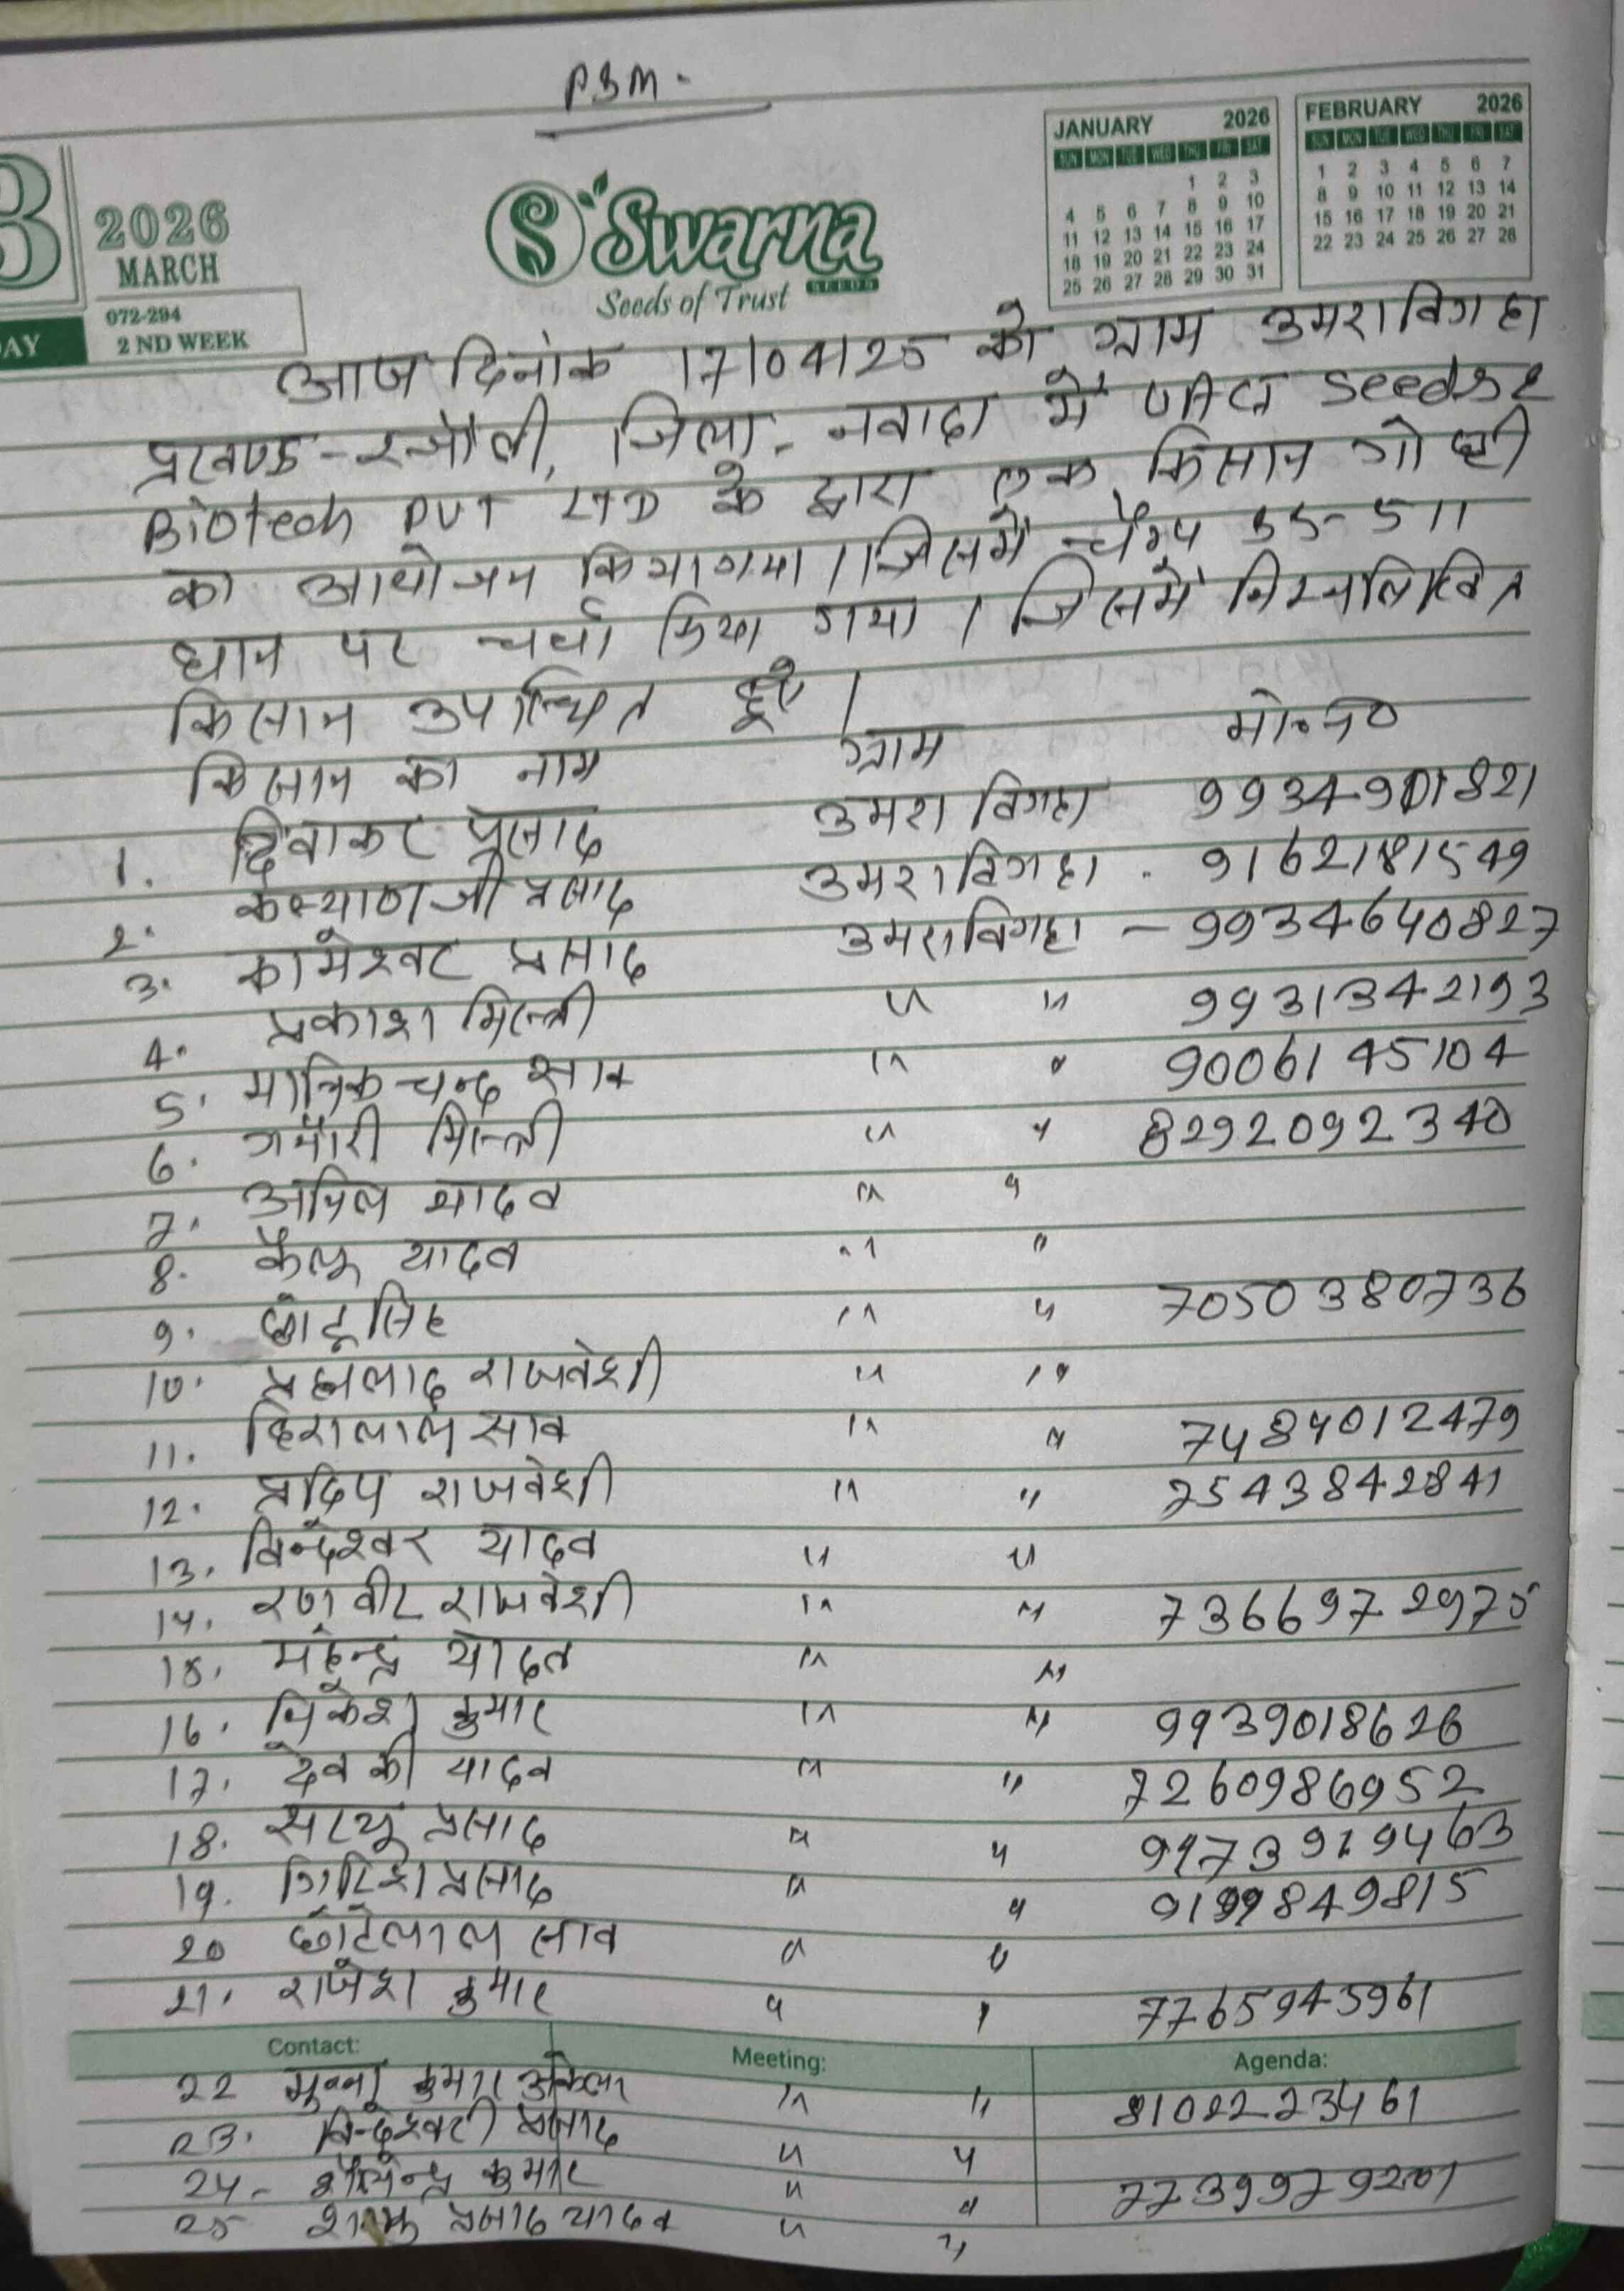 PSM.
JANUARY 2026
SUN MON TUE WED THU FRI SAT
1 2 3
4 5 6 7 8 9 10
11 12 13 14 15 16 17
18 19 20 21 22 23 24
25 26 27 28 29 30 31
FEBRUARY 2026
SUN MON TUE WED THU FRI SAT
1 2 3 4 5 6 7
8 9 10 11 12 13 14
15 16 17 18 19 20 21
22 23 24 25 26 27 28
3 2026
MARCH
072-294
AY 2 ND WEEK
S Swarna
SEEDS
Seeds of Trust
आज दिनांक 17/04/25 को ग्राम उमराविगहा
प्रखण्ड - रजौली, जिला - नवादा में UAG Seeds &
Biotech PVT LTD के द्वारा एक किसान गोष्ठी
का आयोजन किया गया। जिसमें 55-511
धान पर चर्चा किया गया। जिसमें निम्नलिखित
किसान उपस्थित हुए।
किसान का नाम ग्राम मो०न०
1. दिवाकर प्रसाद उमरा विगहा 9934901821
2. कल्याण जी प्रसाद उमराविगहा . 9162181549
3. कामेश्वर प्रसाद उमराविगहा - 9934640827
4. प्रकाश मिस्त्री " " 9931342193
5. मानिक चन्द साव " " 9006145104
6. गनौरी मिस्त्री " " 8292092340
7. अनिल यादव " "
8. कैलू यादव " "
9. छोटू सिंह " " 7050380736
10. प्रहलाद राजवंशी " "
11. हिरालाल साव " " 7484012479
12. प्रदिप राजवंशी " " 7543842841
13. विन्देश्वर यादव " "
14. रणवीर राजवंशी " " 7366972975
15. महेन्द्र यादव " "
16. निकेश कुमार " " 9939018626
17. देवकी यादव " " 7260986952
18. सरयू प्रसाद " " 9173919463
19. गिरिश प्रसाद " " 9199849815
20 छोटेलाल साव " "
21. राजेश कुमार " " 7765945961
Contact: Meeting: Agenda:
22 मुन्ना कुमार अकेला " " 8102223461
23. विन्देश्वरी प्रसाद " "
24- शैलेन्द्र कुमार " " 7739979201
25 प्रसाद यादव " "